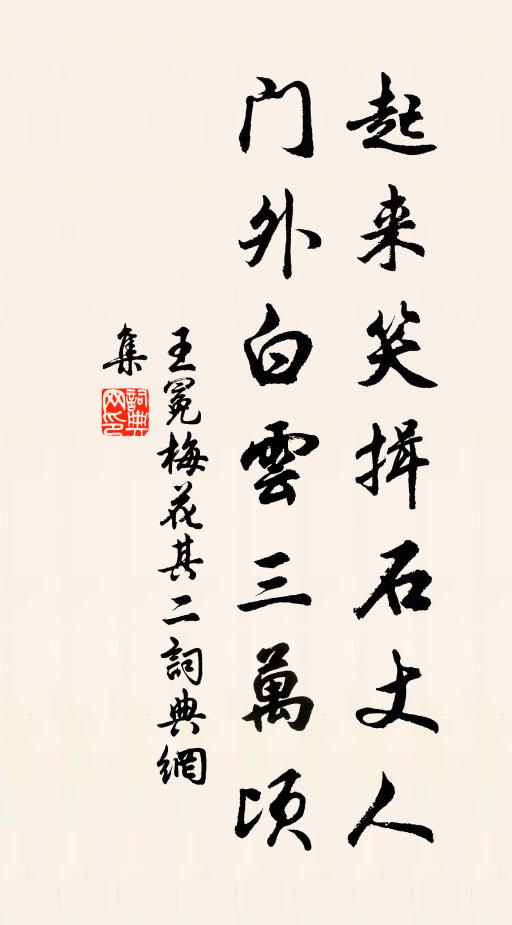 起来笑揖石丈人
门外白雲三萬頃
王冕梅花其二詞典網
集
詞典网印